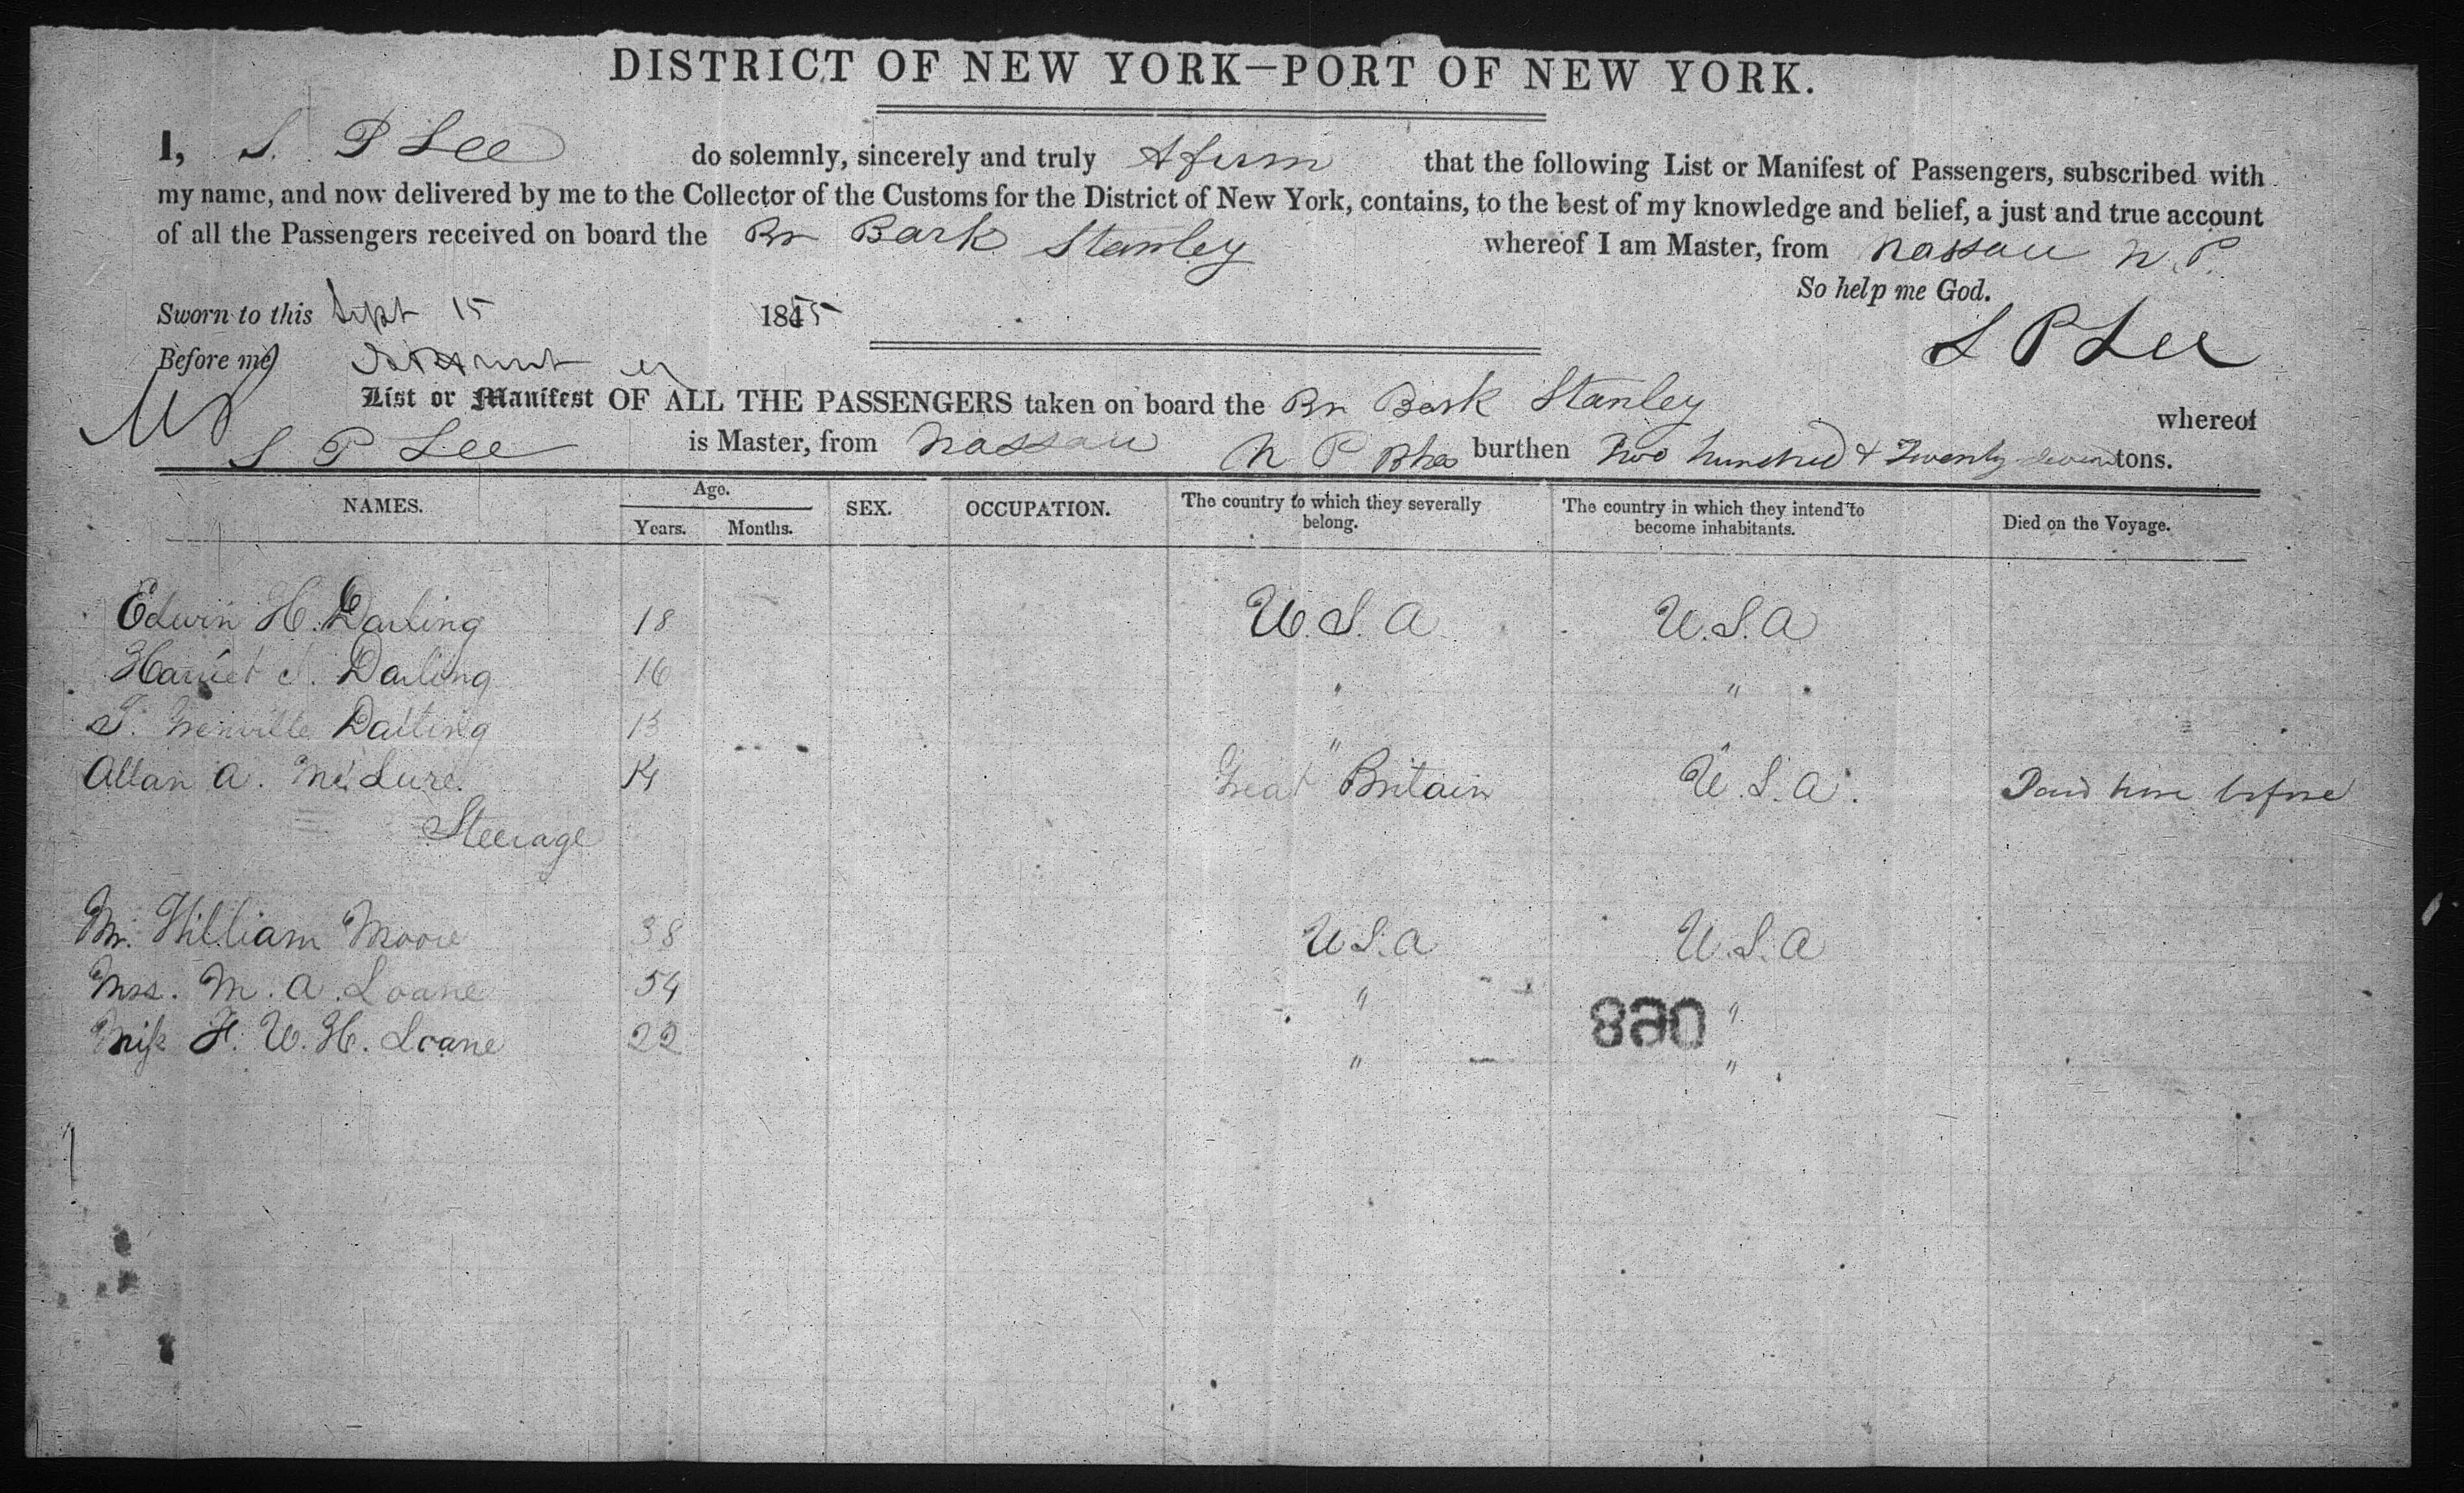 DISTRICT OF NEW YORK—PORT OF NEW YORK.
I, S. P Lee do solemnly, sincerely and truly Afirm that the following List or Manifest of Passengers, subscribed with
my name, and now delivered by me to the Collector of the Customs for the District of New York, contains, to the best of my knowledge and belief, a just and true account
of all the Passengers received on board the Br Bark Stanley whereof I am Master, from Nassau N. P.
So help me God.
Sworn to this Sept 15 1855
S P Lee
Before me
List or Manifest OF ALL THE PASSENGERS taken on board the Br Bark Stanley whereof
S P Lee is Master, from Nassau N P Bhs burthen Two hundred & Twenty seven tons.
NAMES. Age. Years. Months. SEX. OCCUPATION. The country to which they severally belong. The country in which they intend to become inhabitants. Died on the Voyage.
Edwin H. Darling 18 U.S.A U.S.A
Harriet J. Darling 16 " "
Grenville Darling 13 " "
Allan A. McLure. 14 Great Britain U.S.A. before
Steerage
Mr. William Moore 38 U.S.A U.S.A
Mrs. M. A. Loane 54 " "
Miss H. W. H. Loane 22 " "
820